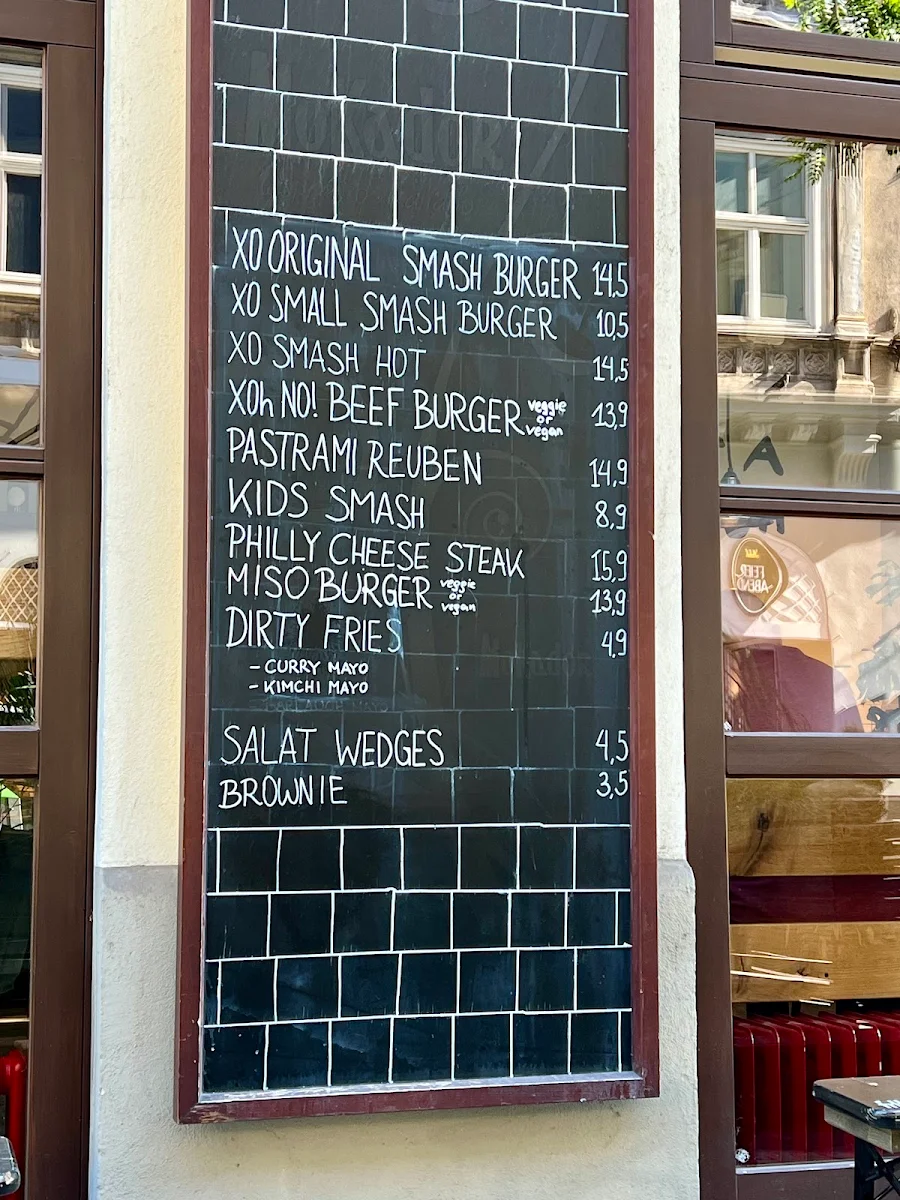 XO ORIGINAL SMASH BURGER 14,5
XO SMALL SMASH BURGER 10,5
XO SMASH HOT 14,5
XOh NO! BEEF BURGER veggie or vegan 13,9
PASTRAMI REUBEN 14,9
KIDS SMASH 8,9
PHILLY CHEESE STEAK 15,9
MISO BURGER veggie or vegan 13,9
DIRTY FRIES 4,9
- CURRY MAYO
- KIMCHI MAYO
SALAT WEDGES 4,5
BROWNIE 3,5
FEIER
ABEND